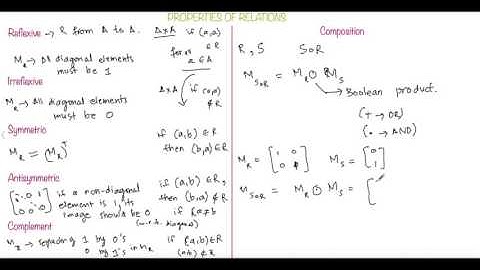 PROPERTIES OF RELATIONS
Reflexive → R from A to A. A×A if (a,a) ∈ R
for all a ∈ A
M_R → All diagonal elements
must be 1
Irreflexive
M_R → All diagonal elements
must be 0
A×A if (a,a) ∉ R
Symmetric
M_R = (M_R)^T
if (a,b) ∈ R
then (b,a) ∈ R
Antisymmetric
if a non-diagonal
element is 1, its
image should be 0
(w.r.t. diagonal)
if (a,b) ∈ R,
then (b,a) ∉ R
if a≠b
Complement
M_R → replacing 1 by 0's
0 by 1's in M_R
if (a,b) ∈ R
(a,b) ∉ R
Composition
R, S SoR
M_SoR = M_R ⊙ M_S
→ Boolean product.
(+ → OR)
(• → AND)
M_R = [1 0
0 1] M_S = [0
1]
M_SoR = M_R ⊙ M_S = [